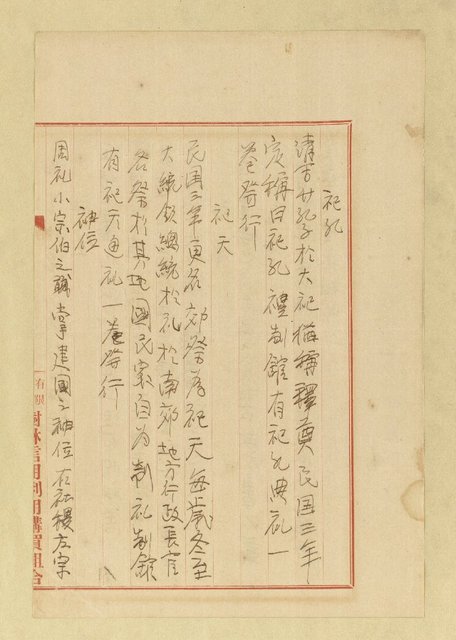 祀孔
清言廿孔子於大祀猶稱釋奠民国三年
定稱曰祀孔禮制館有祀孔典礼一
卷發行
祀天
民国三年更名郊祭為祀天每歲冬至
大統領總統於礼於南郊地方行政長官
各祭於其地國民家自為制礼制館
有祀天通礼一卷發行
神位
周礼小宗伯之職掌建國之神位右社稷左宗
樹林信用利用購買組合